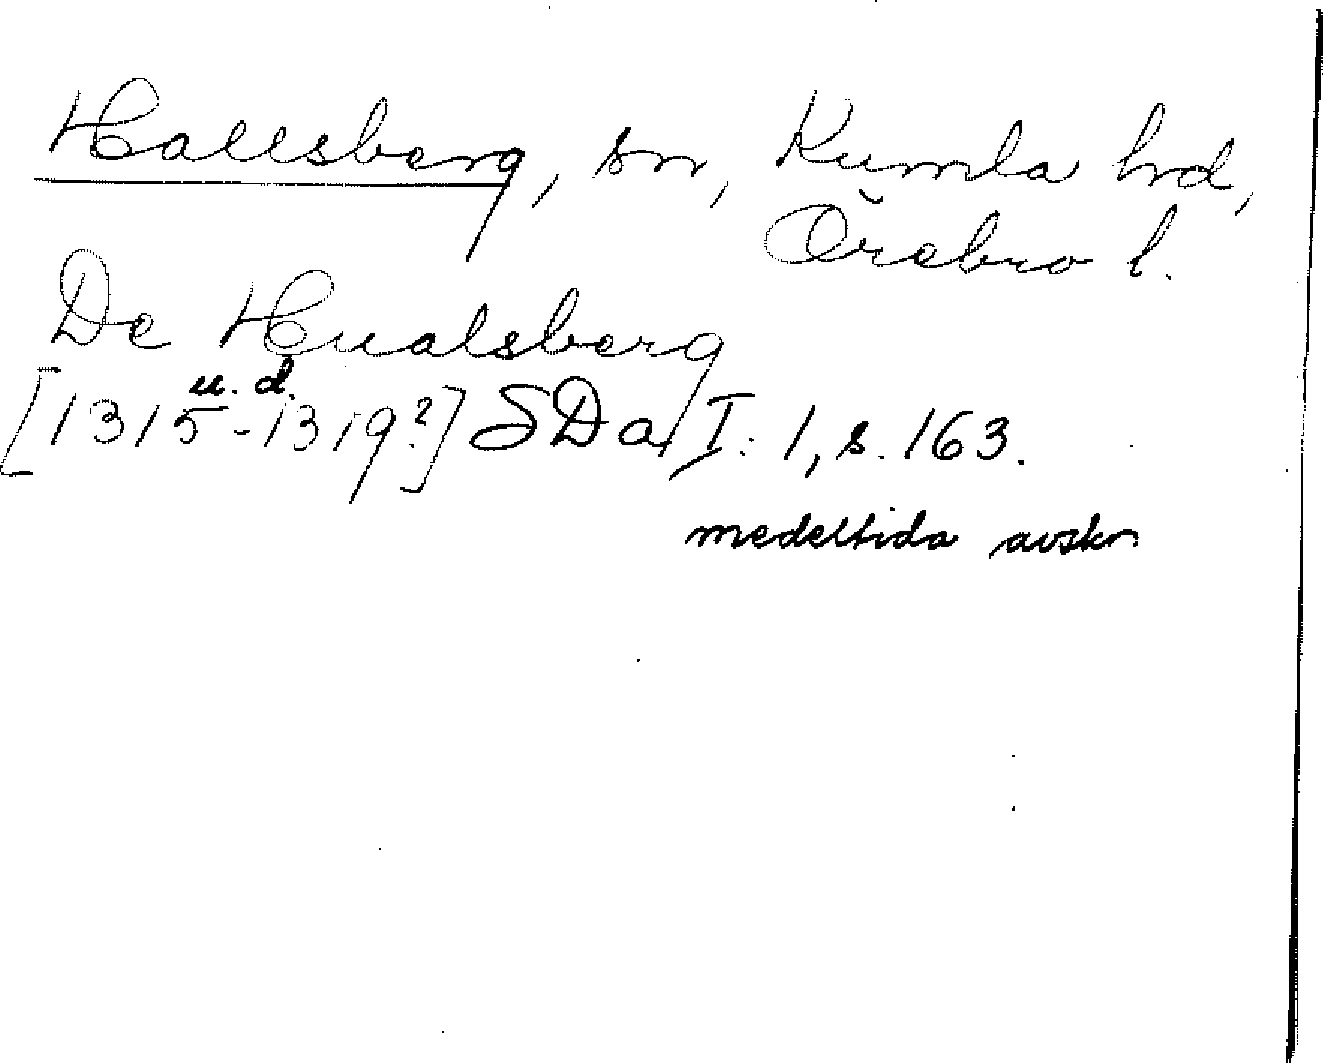 Hallsberg, sn, Kumla hrd,
Örebro l.
De Hualsberg
u. d.
[1315-1319?] SDa I: 1, s. 163.
medeltida avskr